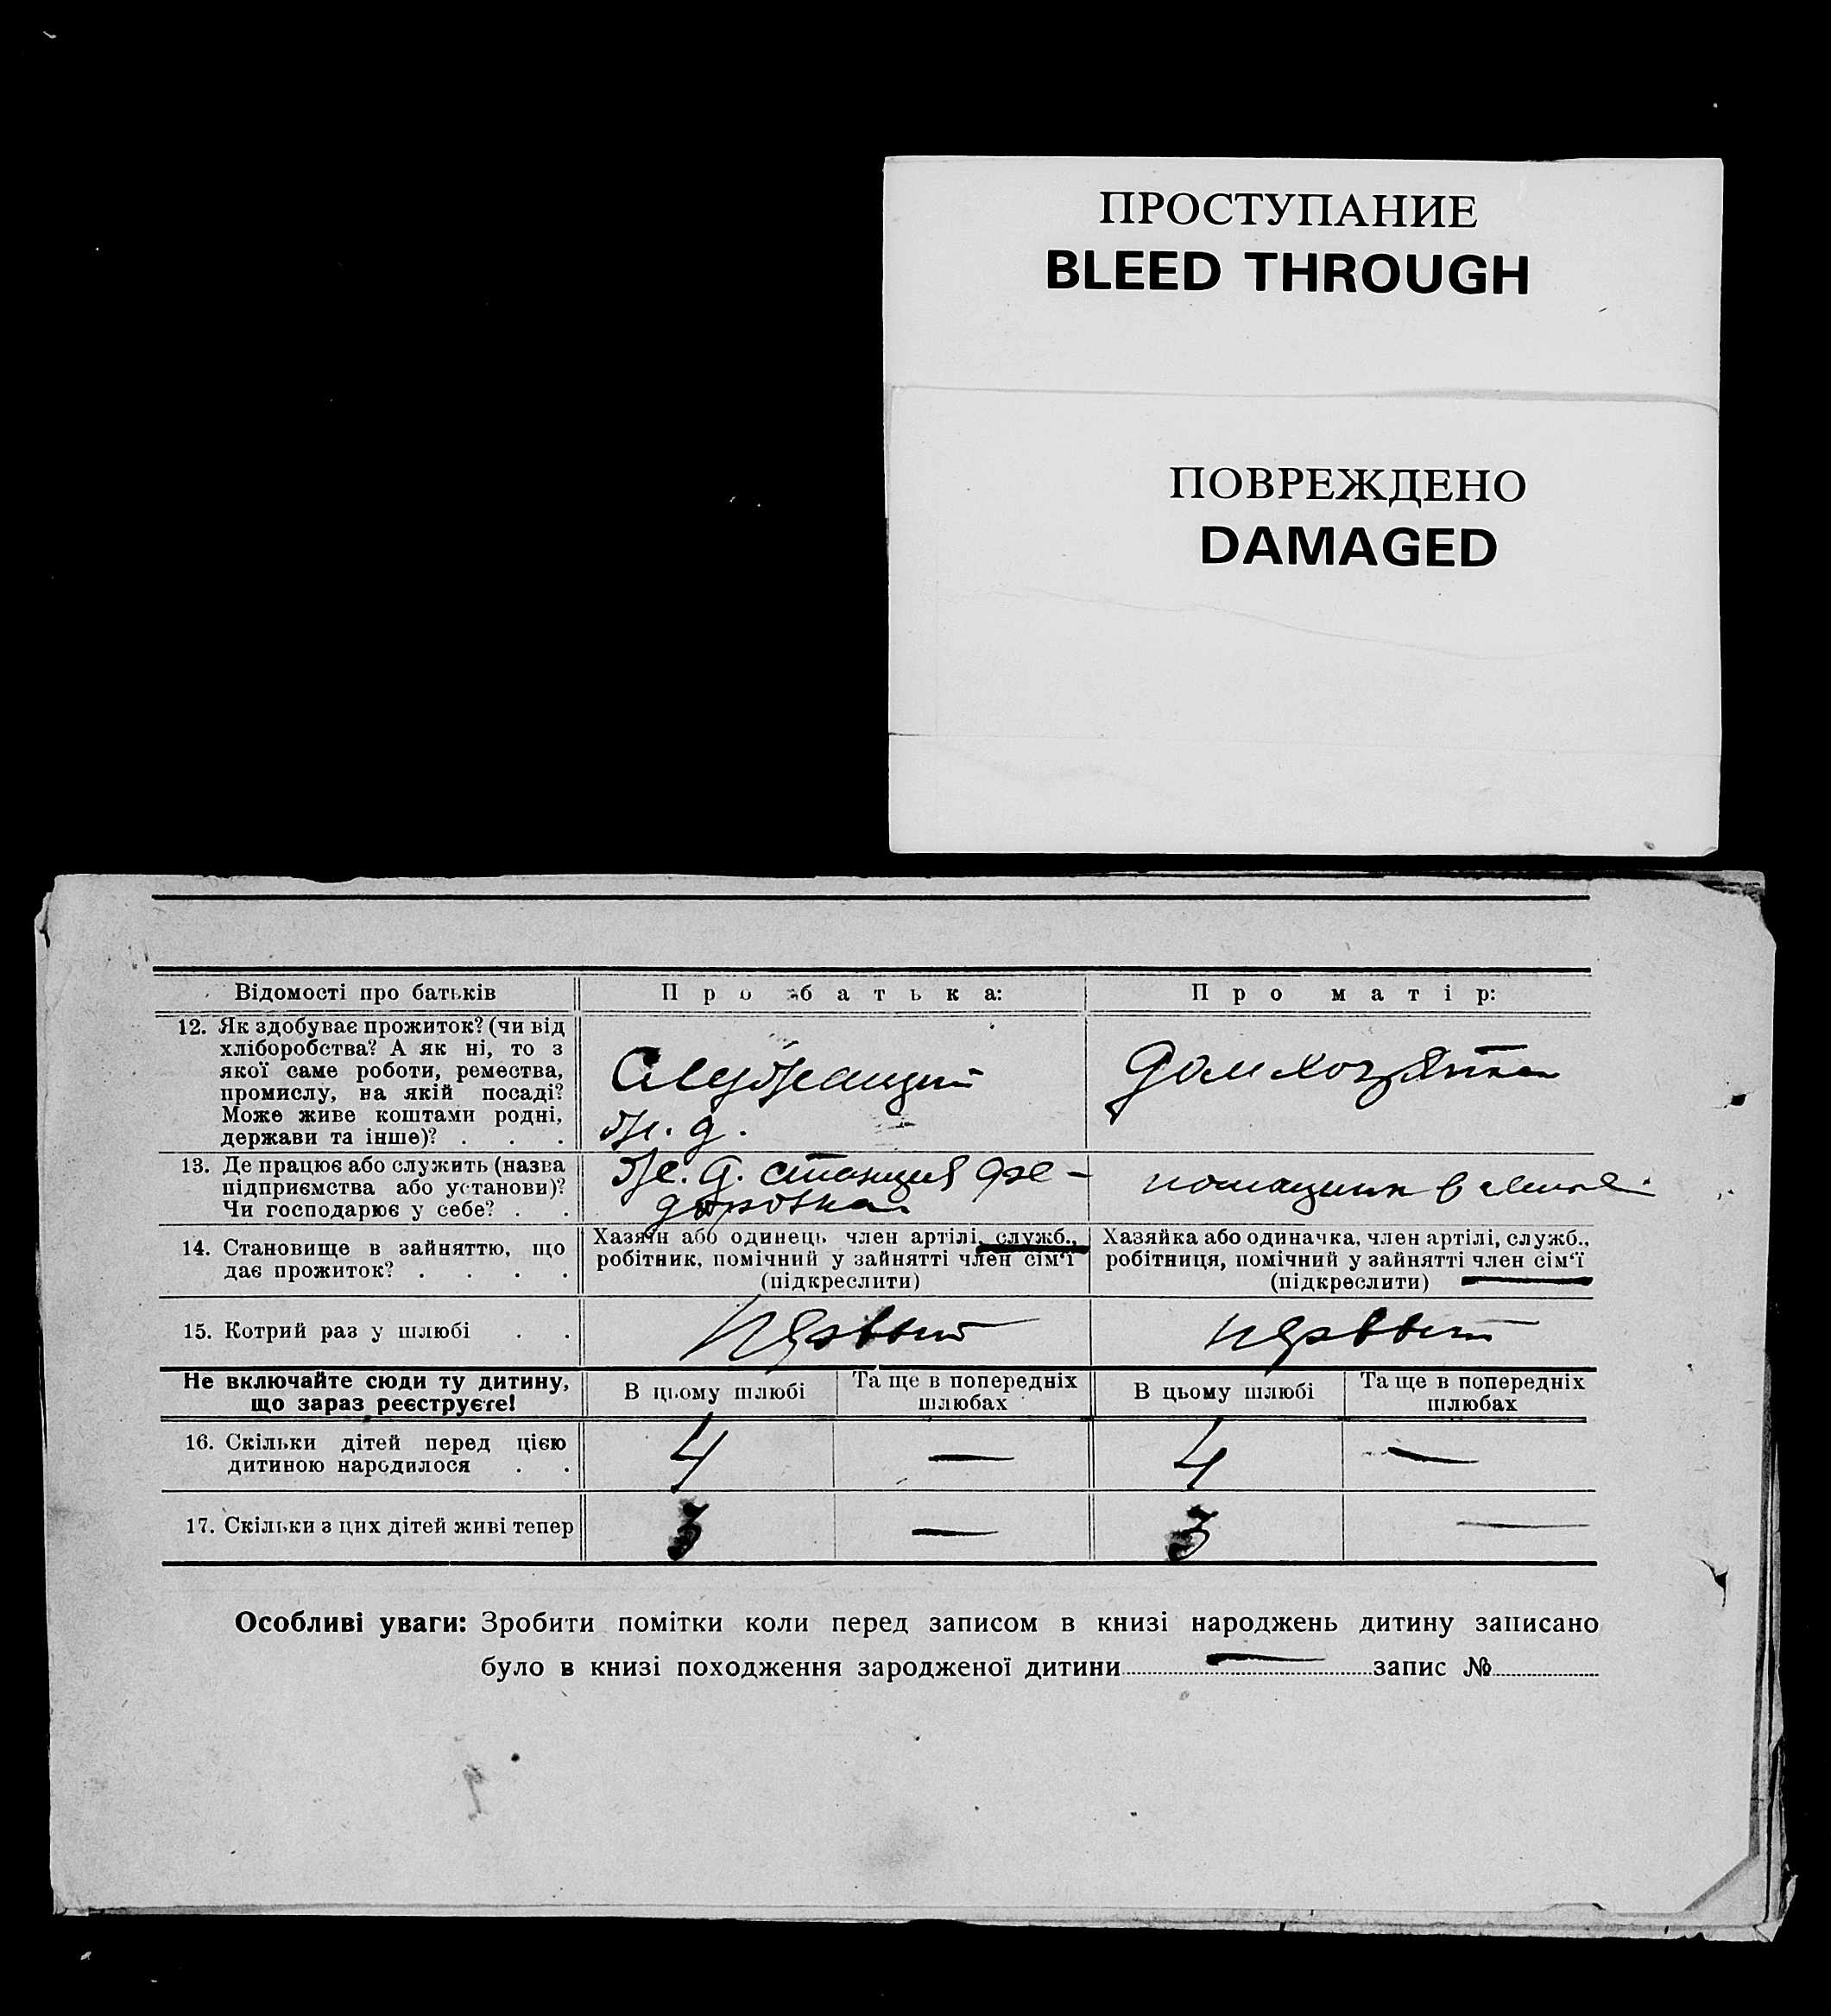 ПРОСТУПАНИЕ
BLEED THROUGH
ПОВРЕЖДЕНО
DAMAGED
Відомості про батьків
Про батька:
Про матір:
12. Як здобуває прожиток? (чи від
хліборобства? А як ні, то з
якої саме роботи, ремества,
промислу, на якій посаді?
Може живе коштами родні,
держави та інше)? . . .
Служащий
ж. д.
Домхозяйка
13. Де працює або служить (назва
підприємства або установи)?
Чи господарює у себе? . .
Ж. д. станция Фе-
доровка
в семье
14. Становище в зайняттю, що
дає прожиток? . . . .
Хазяїн або одинець член артілі, служб.,
робітник, помічний у зайнятті член сім'ї
(підкреслити)
Хазяйка або одиначка, член артілі, служб.,
робітниця, помічний у зайнятті член сім'ї
(підкреслити)
15. Котрий раз у шлюбі . .
первый
первый
Не включайте сюди ту дитину,
що зараз реєструєте!
В цьому шлюбі
Та ще в попередніх
шлюбах
В цьому шлюбі
Та ще в попередніх
шлюбах
16. Скільки дітей перед цією
дитиною народилося . .
4 — 4 —
17. Скільки з цих дітей живі тепер
3 — 3 —
Особливі уваги: Зробити помітки коли перед записом в книзі народжень дитину записано
було в книзі походження зародженої дитини — запис №